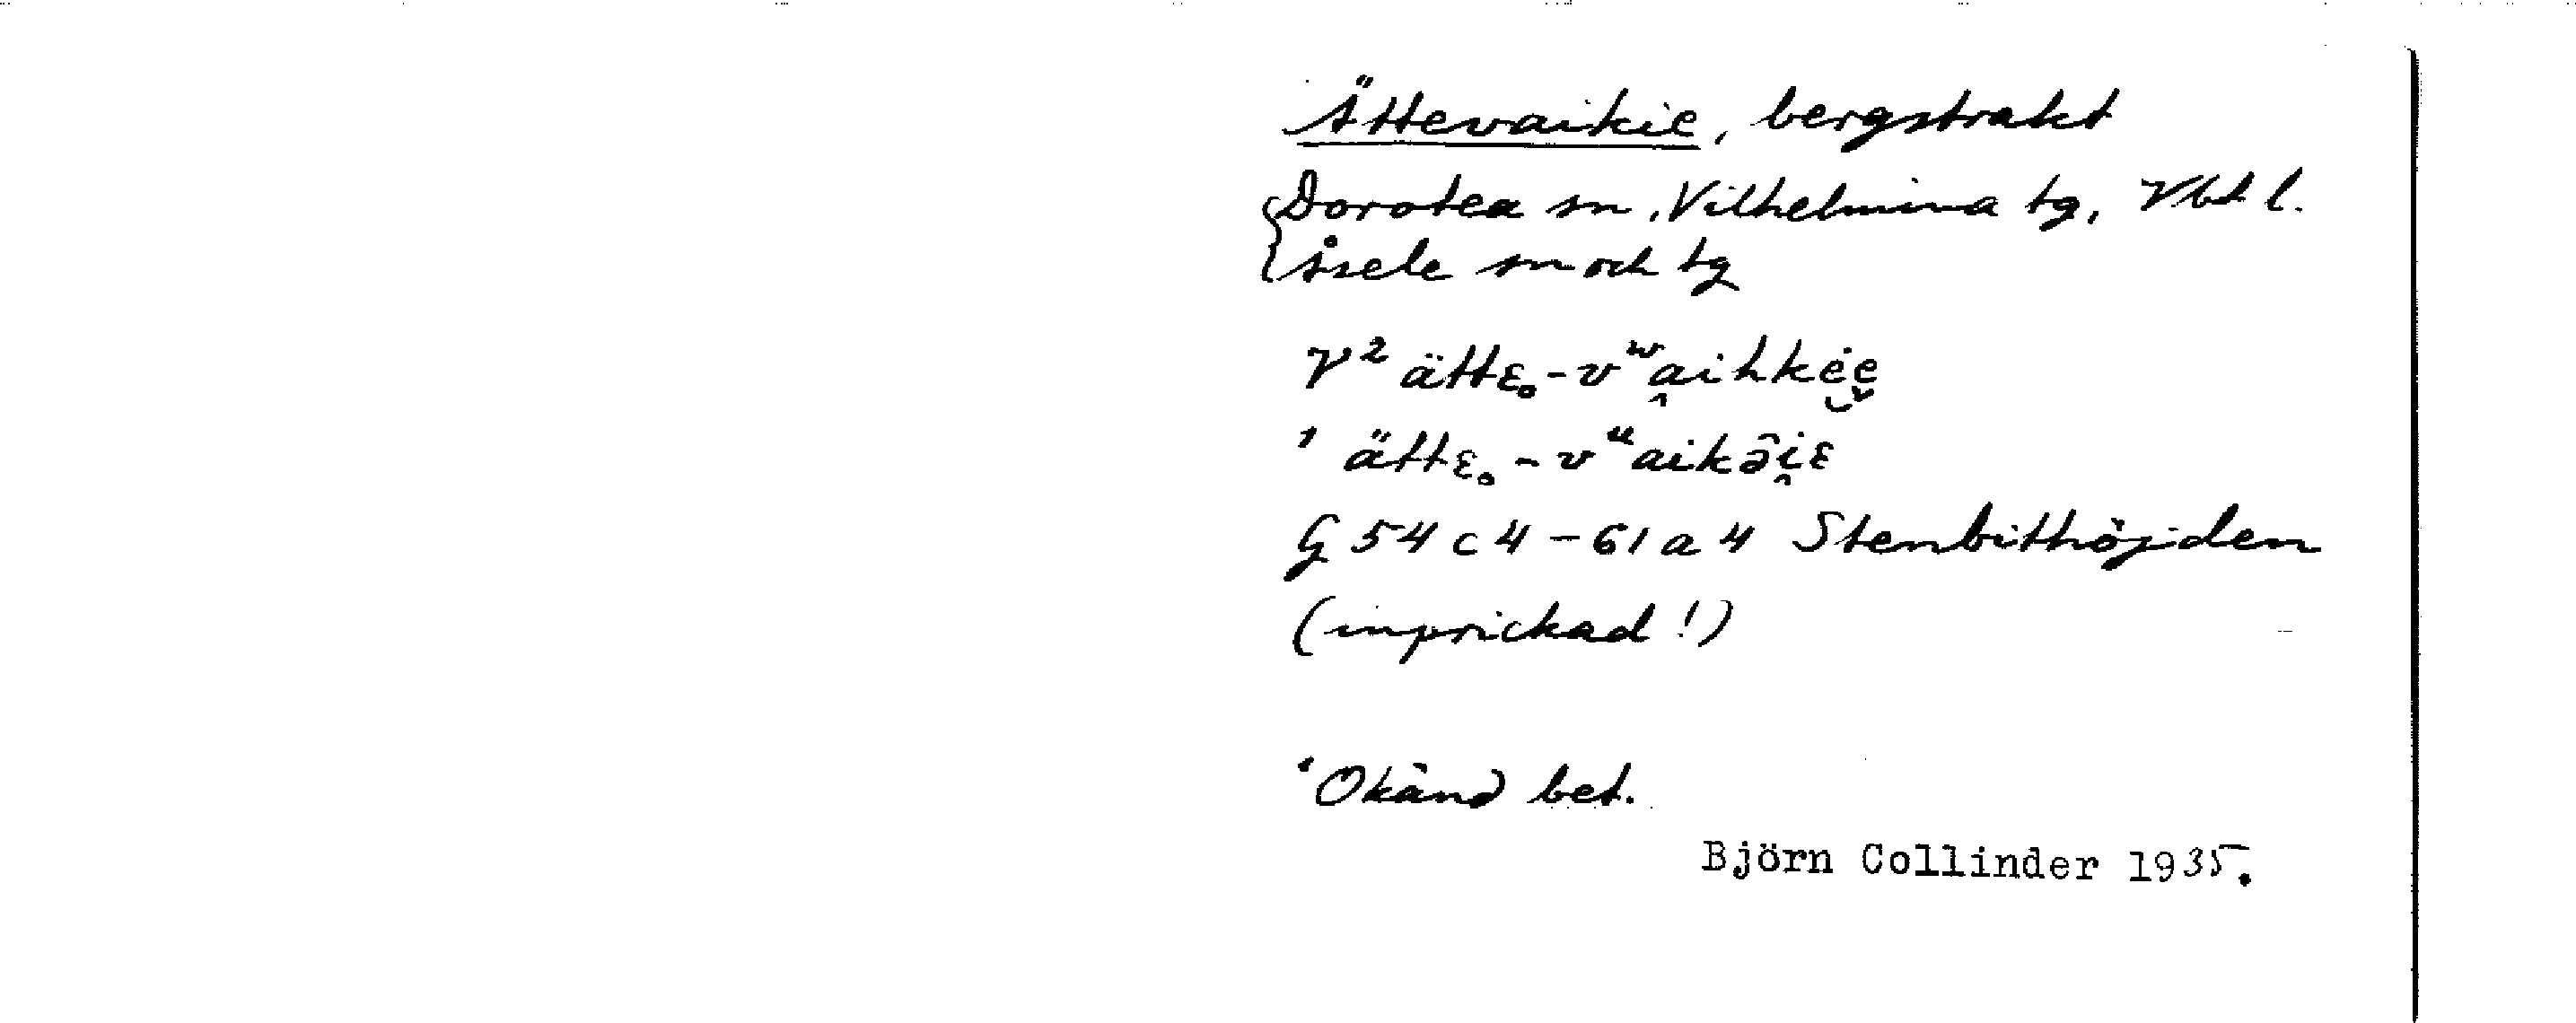 Ättevaikie, bergstrakt
Dorotea sn, Vilhelmina tg, Vbt l.
Åsele sn och tg
V² ättε̥-vʷa̭ihkėe̮̬
¹ ättε̥-vᵘaikə̂i̭ε
G 54 c 4 - 61 a 4 Stenbithöjden
(inprickad!)
¹Okänd bet.
Björn Collinder 1935.